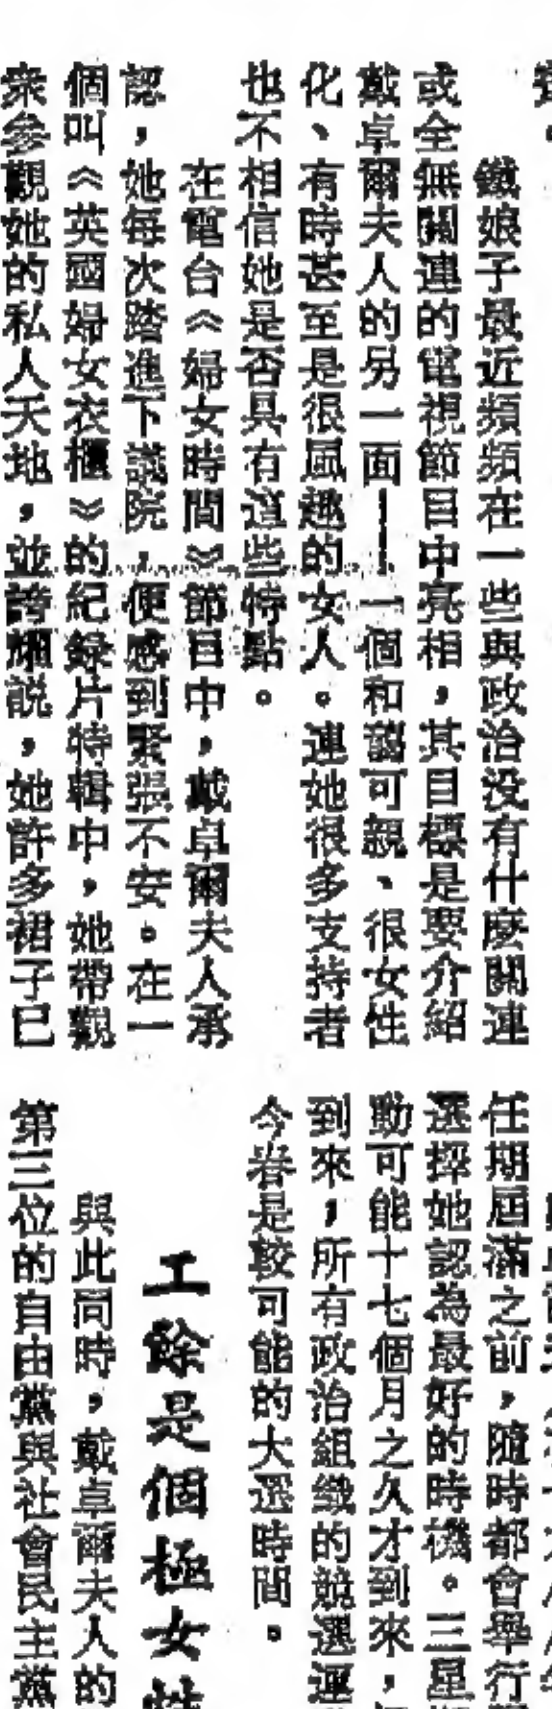 鐵娘子最近頻頻在一些與政治没有什麽關連
或全無關連的電視節目中亮相，其目標是要介紹
戴卓爾夫人的另一面——一個和藹可親、很女性
化、有時甚至是很風趣的女人。連她很多支持者
也不相信她是否具有這些特點。
在電台《婦女時間》節目中，戴卓爾夫人承
認，她每次踏進下議院，便感到緊張不安。在一
個叫《英國婦女衣櫃》的紀錄片特輯中，她帶觀
衆參觀她的私人天地，並誇耀説，她許多裙子已
任期屆滿之前，隨時都會舉行
選擇她認為最好的時機。三星
動可能十七個月之久才到來，
到來，所有政治組織的競選運
今春是較可能的大選時間。
工餘是個極女性
與此同時，戴卓爾夫人的
第三位的自由黨與社會民主黨